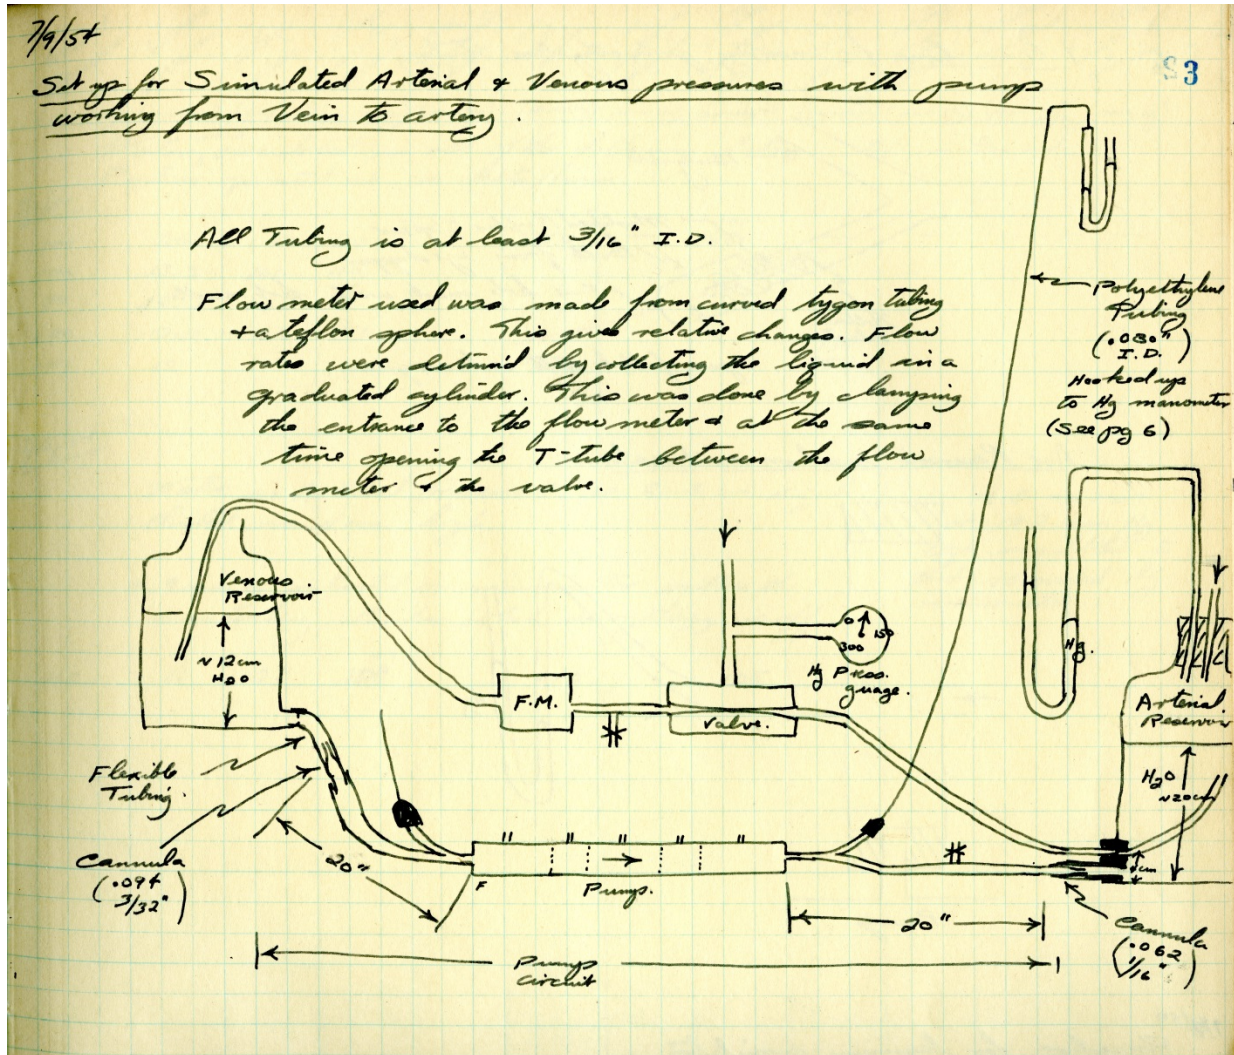 7/9/54
83
Set up for Simulated Arterial & Venous pressures with pump
working from Vein to artery.
All Tubing is at least 3/16" I.D.
Flow meter used was made from curved tygon tubing
+ a teflon sphere. This gives relative changes. Flow
rates were detmin'd by collecting the liquid in a
graduated cylinder. This was done by clamping
the entrance to the flow meter & at the same
time opening the T-tube between the flow
meter & the valve.
Polyethylene
Tubing
(.030"
I.D.)
Hooked up
to Hg manometer
(See pg 6)
Venous
Reservoir
~12cm
H2O
F.M.
Valve.
0 150
300
Hg Press.
guage.
Hg.
Arterial
Reservoir
H2O
~20cm
Flexible
Tubing.
Cannula
(.094
3/32")
20"
F
Pump.
cm
20"
Cannula
(.062
1/16")
Pump
circuit